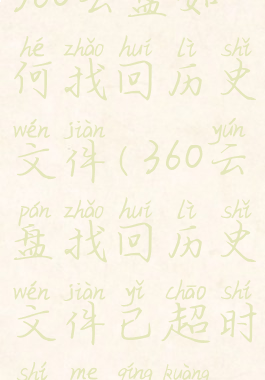 360云盘如
hé zhǎo huí lì shǐ
何找回历史
wén jiàn yún
文件(360云
pán zhǎo huí lì shǐ
盘找回历史
wén jiàn yǐ chāo shí
文件已超时
shí me qíng kuàng